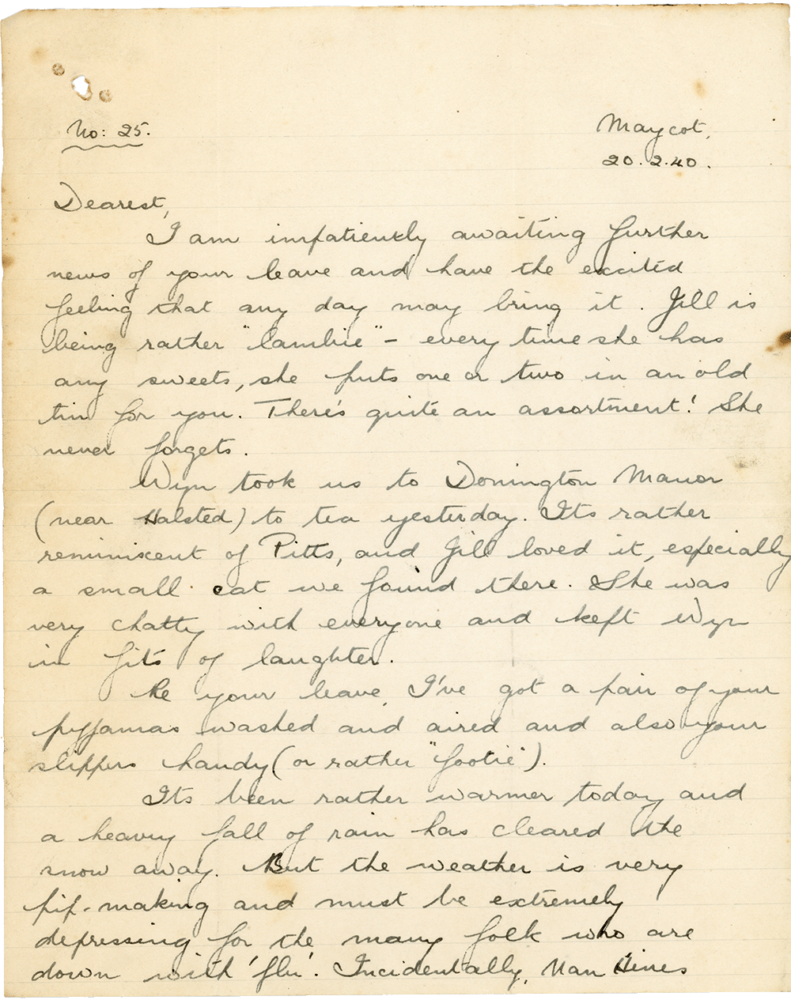 No: 25.
Maycot,
20.2.40.
Dearest,
I am impatiently awaiting further
news of your leave and have the excited
feeling that any day may bring it. Jill is
being rather "lambie" - every time she has
any sweets, she puts one or two in an old
tin for you. There's quite an assortment! She
never forgets.
Wyn took us to Donington Manor
(near Halsted) to tea yesterday. Its rather
reminiscent of Pitts, and Jill loved it, especially
a small cat we found there. She was
very chatty with everyone and kept Wyn
in fits of laughter.
Re your leave, I've got a pair of your
pyjamas washed and aired and also your
slippers handy (or rather "footie").
Its been rather warmer today and
a heavy fall of rain has cleared the
snow away. But the weather is very
pip-making and must be extremely
depressing for the many folk who are
down with 'flu'. Incidentally, Nan Hines